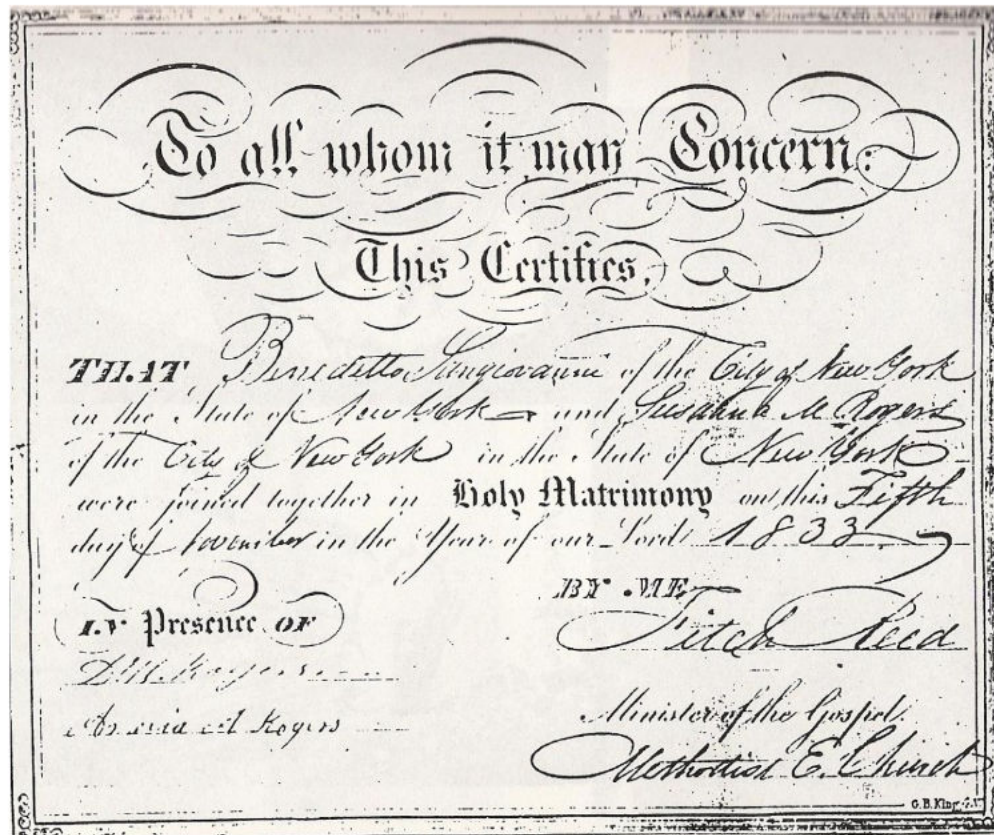 To all whom it may Concern:
This Certifies,
THAT Benedetto Sangiovanni of the City of New York
in the State of New York and Susanna M Rogers
of the City of New York in the State of New York
were joined together in Holy Matrimony on this Fifth
day of November in the Year of our Lord 1833
BY ME
IN Presence OF
Fitch Reed
Rogers
A Rogers
Minister of the Gospel
Methodist E. Church
G.B. King